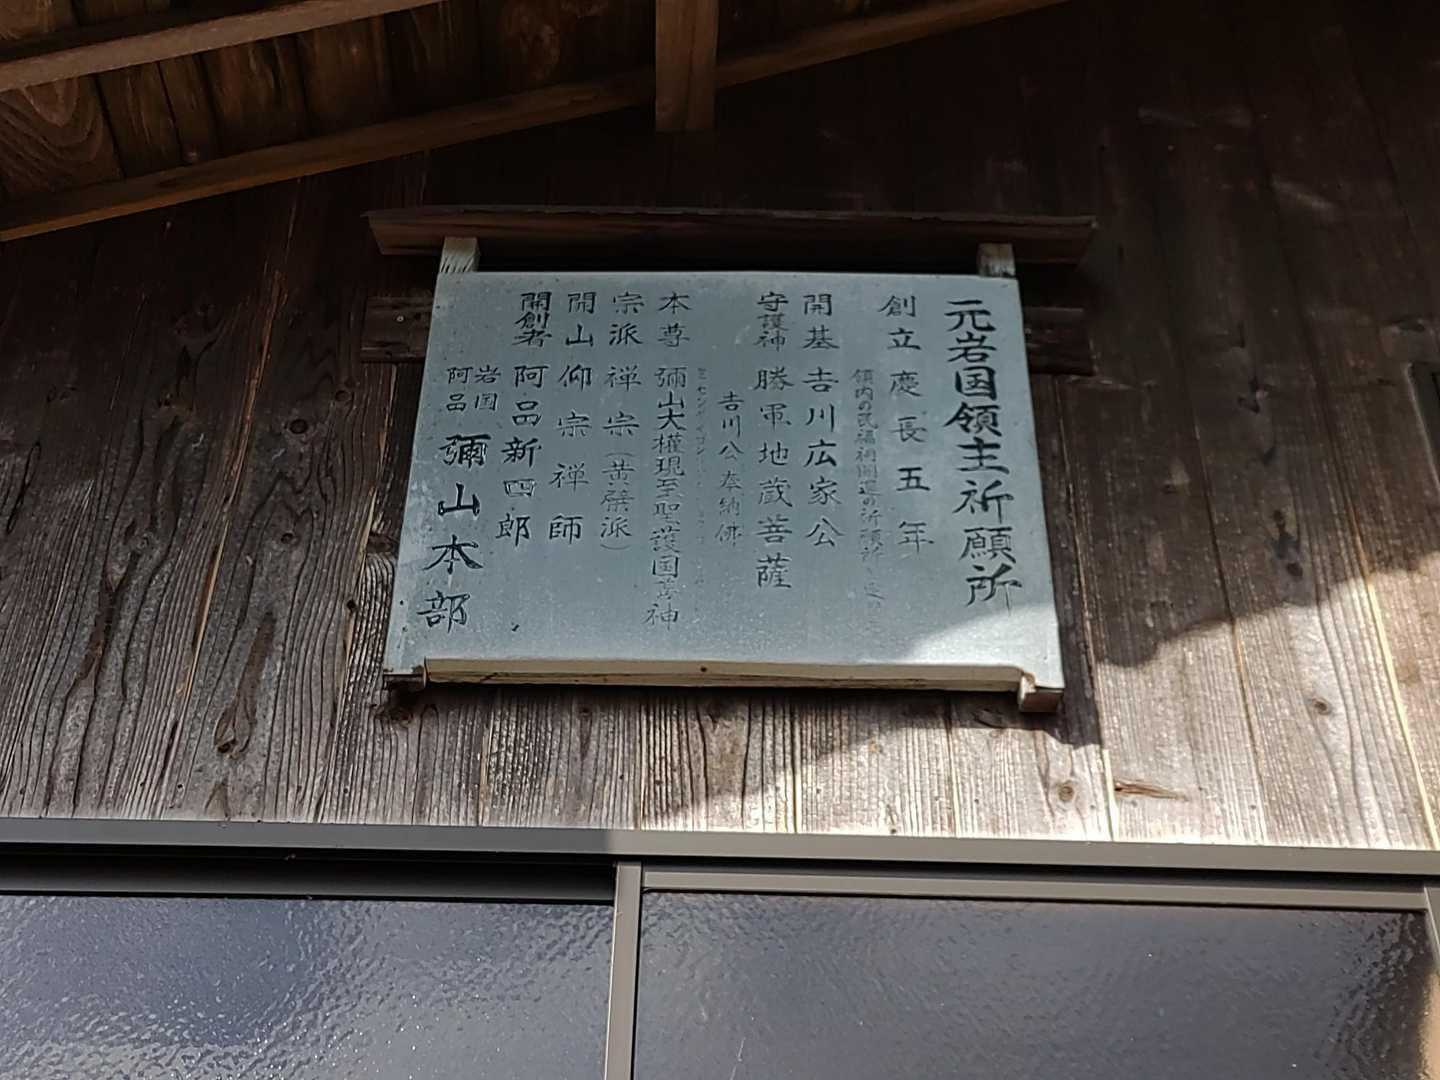 元岩国領主祈願所
創立慶長五年
領内の民福祠開運の祈願所
開基吉川広家公
守護神 勝軍地蔵菩薩
吉川公奉納佛
本尊 彌山大権現至聖護国善神
宗派 禅宗（黄檗派）
開山 仰宗禅師
開創者 阿品新四郎
岩国
阿品
彌山本部